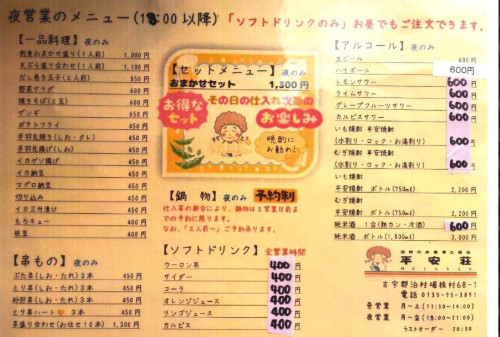 夜営業のメニュー(18:00以降)「ソフトドリンクのみ」お昼でもご注文できます。
【一品料理】夜のみ
刺身おまかせ盛り(1人前) 1,000円
天ぷら盛り合わせ(1人前) 1,100円
だし巻き玉子(2人前) 850円
野菜サラダ 600円
焼きそば(2玉) 600円
ザンギ 550円
ポテトフライ 450円
手羽先焼き(しお・タレ) 450円
手羽先揚げ(しお) 450円
イカゲソ揚げ 450円
イカ納豆 450円
マグロ納豆 450円
切り込み 450円
イカ三升漬け 400円
もろキュー 400円
枝豆 400円
【串もの】夜のみ
ぶた串(しお・たれ)3本 450円
とり串(しお・たれ)3本 450円
砂肝串(しお・たれ)3本 450円
とり串ハート3本 450円
串盛り合わせ(お任せ10本) 1,300円
【セットメニュー】夜のみ
おまかせセット 1,500円
お得なセット
その日の仕入れ次第のお楽しみ
晩酌にお勧め!
【鍋 物】夜のみ 予約制
仕入等の都合により、鍋物は2営業日前
までの予約に限ります。
なお、「2人前~」ご予約承ります。
【ソフトドリンク】全営業時間
ウーロン茶 400円
サイダー 400円
コーラ 400円
オレンジジュース 400円
リンゴジュース 400円
カルピス 400円
【アルコール】夜のみ
生ビール 600円
ハイボール 600円
レモンサワー 600円
ライムサワー 600円
グレープフルーツサワー 600円
カルピスサワー 600円
いも焼酎 平安焼酎
(水割り・ロック・お湯割り) 600円
むぎ焼酎
(水割り・ロック・お湯割り) 600円
いも焼酎
平安焼酎 ボトル(750ml) 2,200円
むぎ焼酎
平安焼酎 ボトル(750ml) 2,200円
純米酒 1合(熱カン・冷酒) 600円
純米酒 ボトル 円
平安荘
HEIANSO
古宇郡泊村堀株村68-1
電話 0135-75-3891
昼営業 月~土(11:30~14:00)
夜営業 月~金(18:00~21:00)
ラストオーダー 20:30